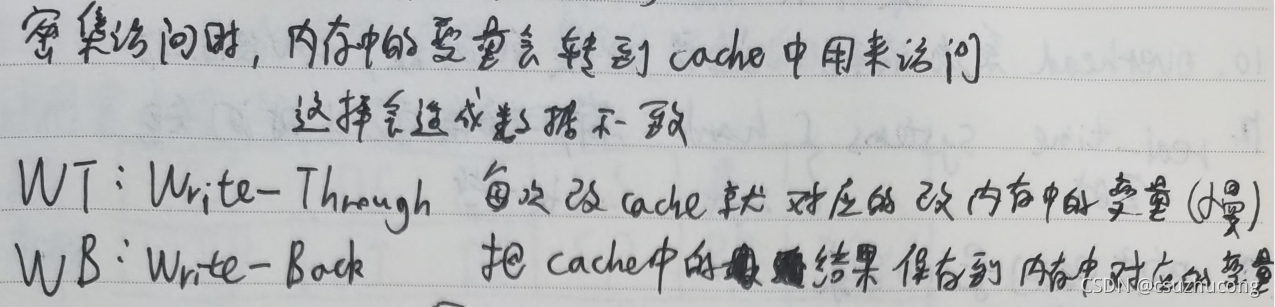 密集访问时,内存中的变量会转到 cache 中用来访问
这样会造成数据不一致
WT: Write-Through 每次改 cache 就对应的改内存中的变量(慢)
WB: Write-Back 把 cache中的结果保存到内存中对应的变量
CSDN @csuzhucong